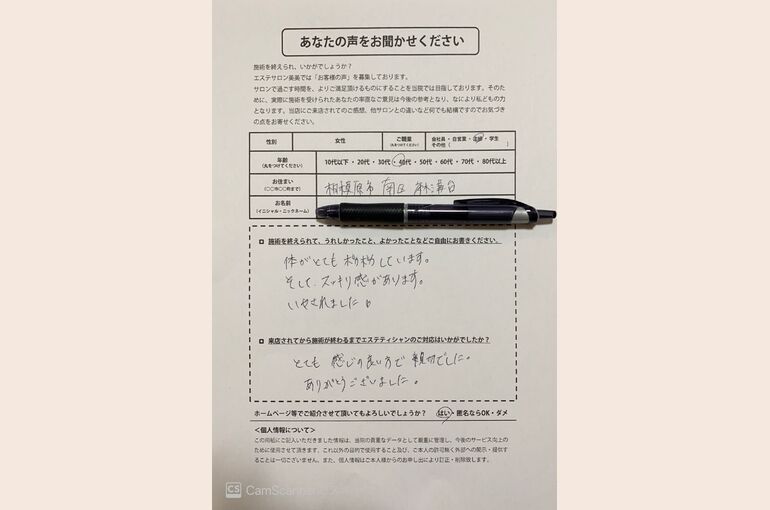 あなたの声をお聞かせください
施術を終えられ、いかがでしょうか？
エステサロン美美では「お客様の声」を募集しております。
サロンで過ごす時間を、よりご満足頂けるものにすることを当院では目指しております。そのた
めに、実際に施術を受けられたあなたの率直なご意見は今後の参考となり、なにより私どもの力
となります。当店にご来店されてのご感想、他サロンとの違いなど何でも結構ですのでお気づき
の点をお寄せください。
性別 女性 ご職業 (丸をつけてください) 会社員・自営業・主婦・学生
その他（ ）
年齢 (丸をつけてください) 10代以下・20代・30代・40代・50代・60代・70代・80代以上
お住まい (〇〇市〇〇町まで) 相模原市 南区 麻溝台
お名前
(イニシャル・ニックネーム)
施術を終えられて、うれしかったこと、よかったことなどご自由にお書きください。
体がとても ポカポカしています。
そして、スッキリ感があります。
いやされました。
来店されてから施術が終わるまでエステティシャンのご対応はいかがでしたか？
とても 感じの良い方で 親切でした。
ありがとうございました。
ホームページ等でご紹介させて頂いてもよろしいでしょうか？ はい・匿名ならOK・ダメ
＜個人情報について＞
この用紙にご記入いただきました情報は、当院の貴重なデータとして厳重に管理し、今後のサービス向上の
ために使用させて頂きます。これ以外の目的で使用すること及び、ご本人の許可無く外部への開示・提供す
ることは一切ございません。また、個人情報はご本人様からのお申し出により訂正・削除致します。
CS CamScanner